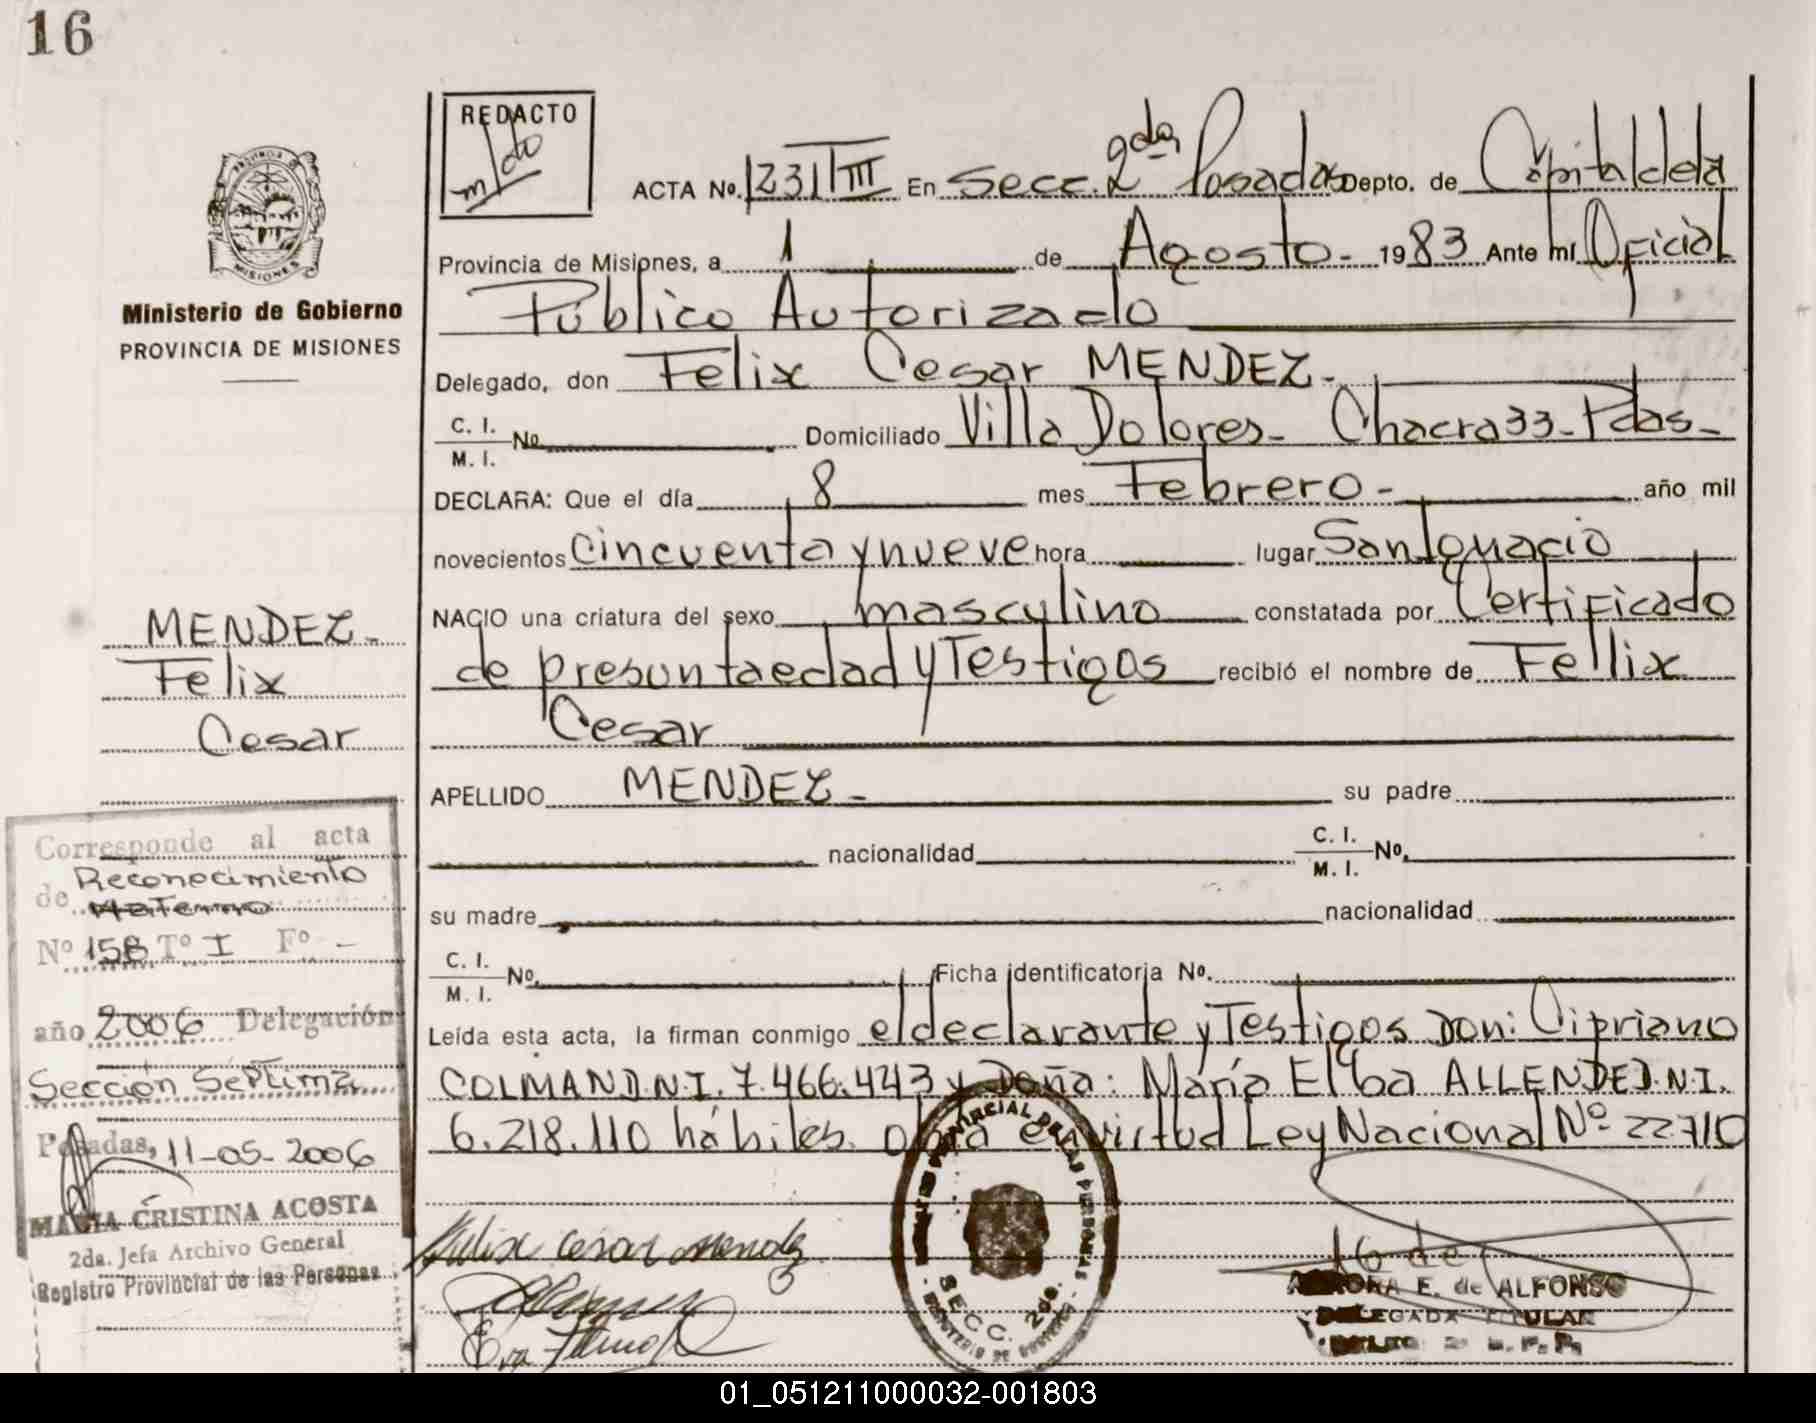 16
REDACTO
m/do
ACTA No. 1231 TIII En Secc. 2da Posadas Depto. de Capital de la
Provincia de Misiones, a 1 de Agosto - 1983 Ante mí Oficial
Público Autorizado
Delegado, don Felix Cesar MENDEZ -
C. I.
M. I. No. Domiciliado Villa Dolores - Chacra 33 - Pdas -
DECLARA: Que el día 8 mes Febrero - año mil
novecientos cincuenta y nueve hora lugar San Ignacio
NACIO una criatura del sexo masculino constatada por Certificado
de presunta edad y Testigos recibió el nombre de Fellix
Cesar
APELLIDO MENDEZ - su padre
nacionalidad C. I.
M. I. No.
su madre nacionalidad
C. I.
M. I. No. Ficha identificatoria No.
Leída esta acta, la firman conmigo el declarante y Testigos Don: Cipriano
COLMAN D.N.I. 7.466.423 y Doña: María Elba ALLENDE D.N.I.
6.218.110 hábiles. obra en virtud Ley Nacional Nº 22710
Felix cesar mendez
SECC. 2da.
E. de ALFONSO
DELEGADA TITULAR
PROVINCIA
MISIONES
Ministerio de Gobierno
PROVINCIA DE MISIONES
MENDEZ -
Felix
Cesar
Corresponde al acta
de Reconocimiento
Materno
Nº 158 Tº I Fº -
año 2006 Delegación
Sección Séptima
Posadas, 11-05-2006
MARIA CRISTINA ACOSTA
2da. Jefa Archivo General
Registro Provincial de las Personas
01_051211000032-001803